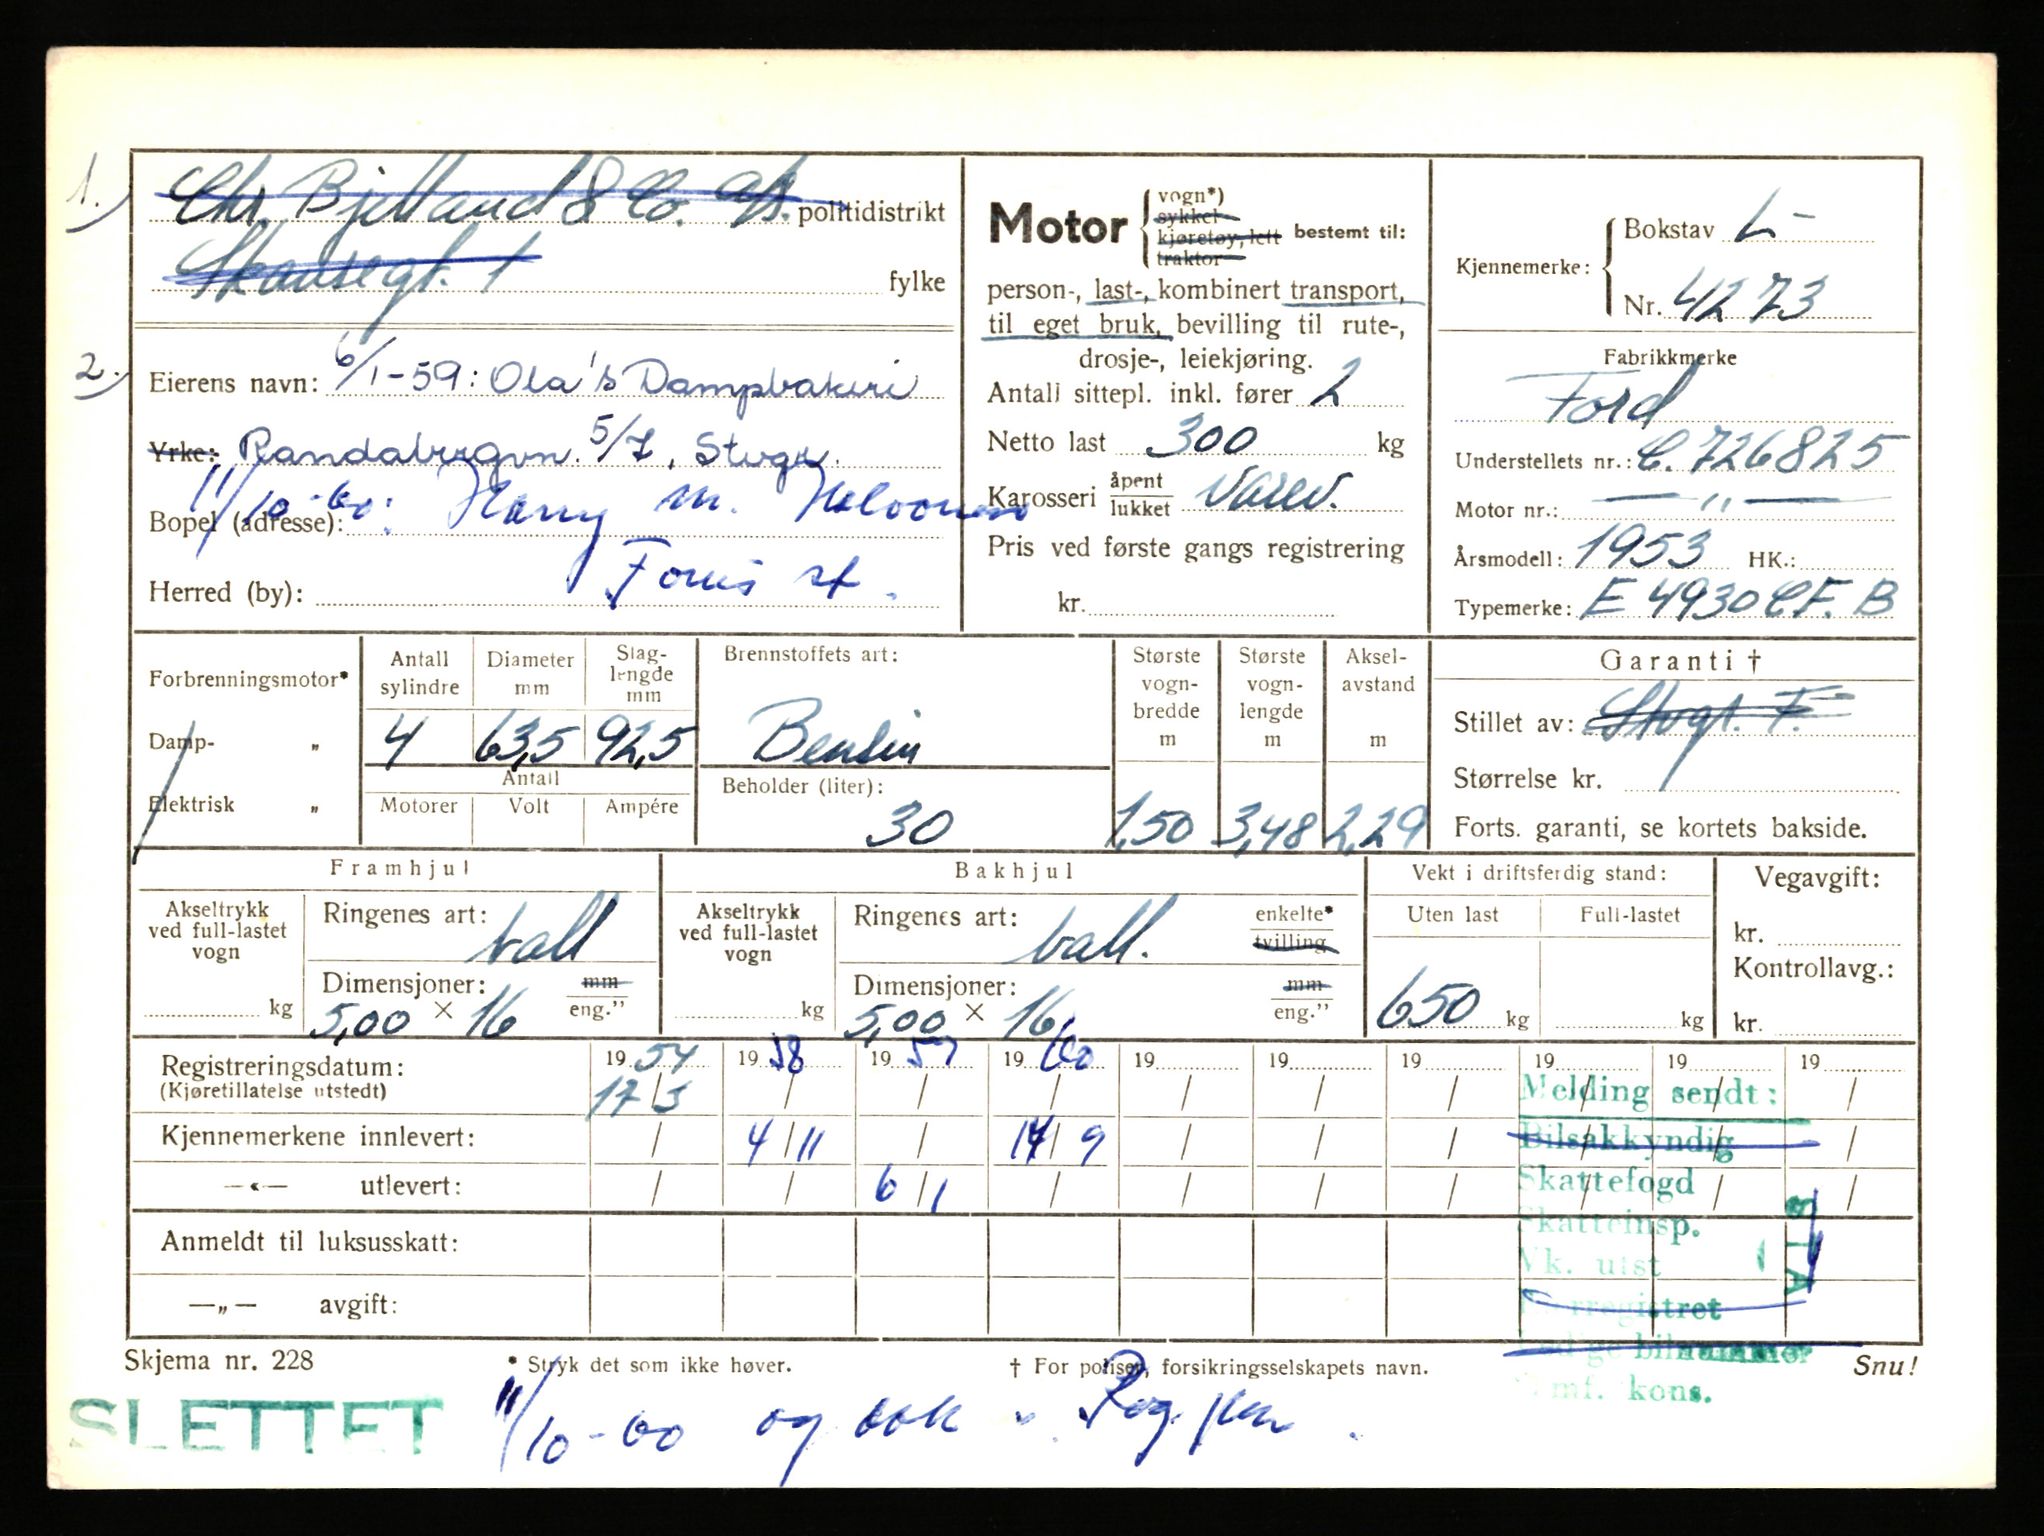 1.) Chr. Bjelland & Co. A/S. politidistrikt
Skansegt. 1 fylke
2.) Eierens navn: 6/1-59: Ola's Dampbakeri
Yrke: Randabergvn. 5/7, Stvgr.
11/10-60: Harry M. Halvorsen
Bopel (adresse):
Forus st.
Herred (by):
Motor { vogn*) sykkel kjøretøy, lett traktor bestemt til:
person-, last-, kombinert transport,
til eget bruk, bevilling til rute-,
drosje-, leiekjøring.
Antall sittepl. inkl. fører 2
Netto last 300 kg
Karosseri åpent lukket Varev.
Pris ved første gangs registrering
kr.
Kjennemerke: { Bokstav L-
Nr. 41273
Fabrikkmerke
Ford
Understellets nr.: C. 726825
Motor nr.: — " —
Årsmodell: 1953 HK.:
Typemerke: E 493 CF. B
Forbrenningsmotor*
Damp- „
Elektrisk „
Antall sylindre Diameter mm Slaglengde mm
4 63,5 92,5
Antall
Motorer Volt Ampére
Brennstoffets art:
Bensin
Beholder (liter):
30
Største vogn-bredde m Største vogn-lengde m Aksel-avstand m
1,50 3,48 2,29
Garanti †
Stillet av: Stvgr. F.
Størrelse kr.
Forts. garanti, se kortets bakside.
Framhjul
Akseltrykk ved full-lastet vogn kg
Ringenes art: ball
Dimensjoner: mm
5,00 × 16 eng."
Bakhjul
Akseltrykk ved full-lastet vogn kg
Ringenes art: ball. enkelte* tvilling
Dimensjoner: mm
5,00 × 16 eng."
Vekt i driftsferdig stand:
Uten last Full-lastet
650 kg kg
Vegavgift:
kr.
Kontrollavg.:
kr.
Registreringsdatum: 1954 1958 1959 1960 19 19 19 19 19 19
(Kjøretillatelse utstedt) 17/3 / / / / / / / / /
Kjennemerkene innlevert: / 4/11 / 14/9 / / / / / /
—«— utlevert: / / 6/1 / / / / / / /
Anmeldt til luksusskatt:
—„— avgift:
Melding sendt:
Bilsakkyndig
Skattefogd
Skatteinsp.
Vk. utst
rregistret
Ledige bilnummer
Omf. kons.
Skjema nr. 228 * Stryk det som ikke høver. † For poliser, forsikringsselskapets navn. Snu!
SLETTET 11/10-60 og